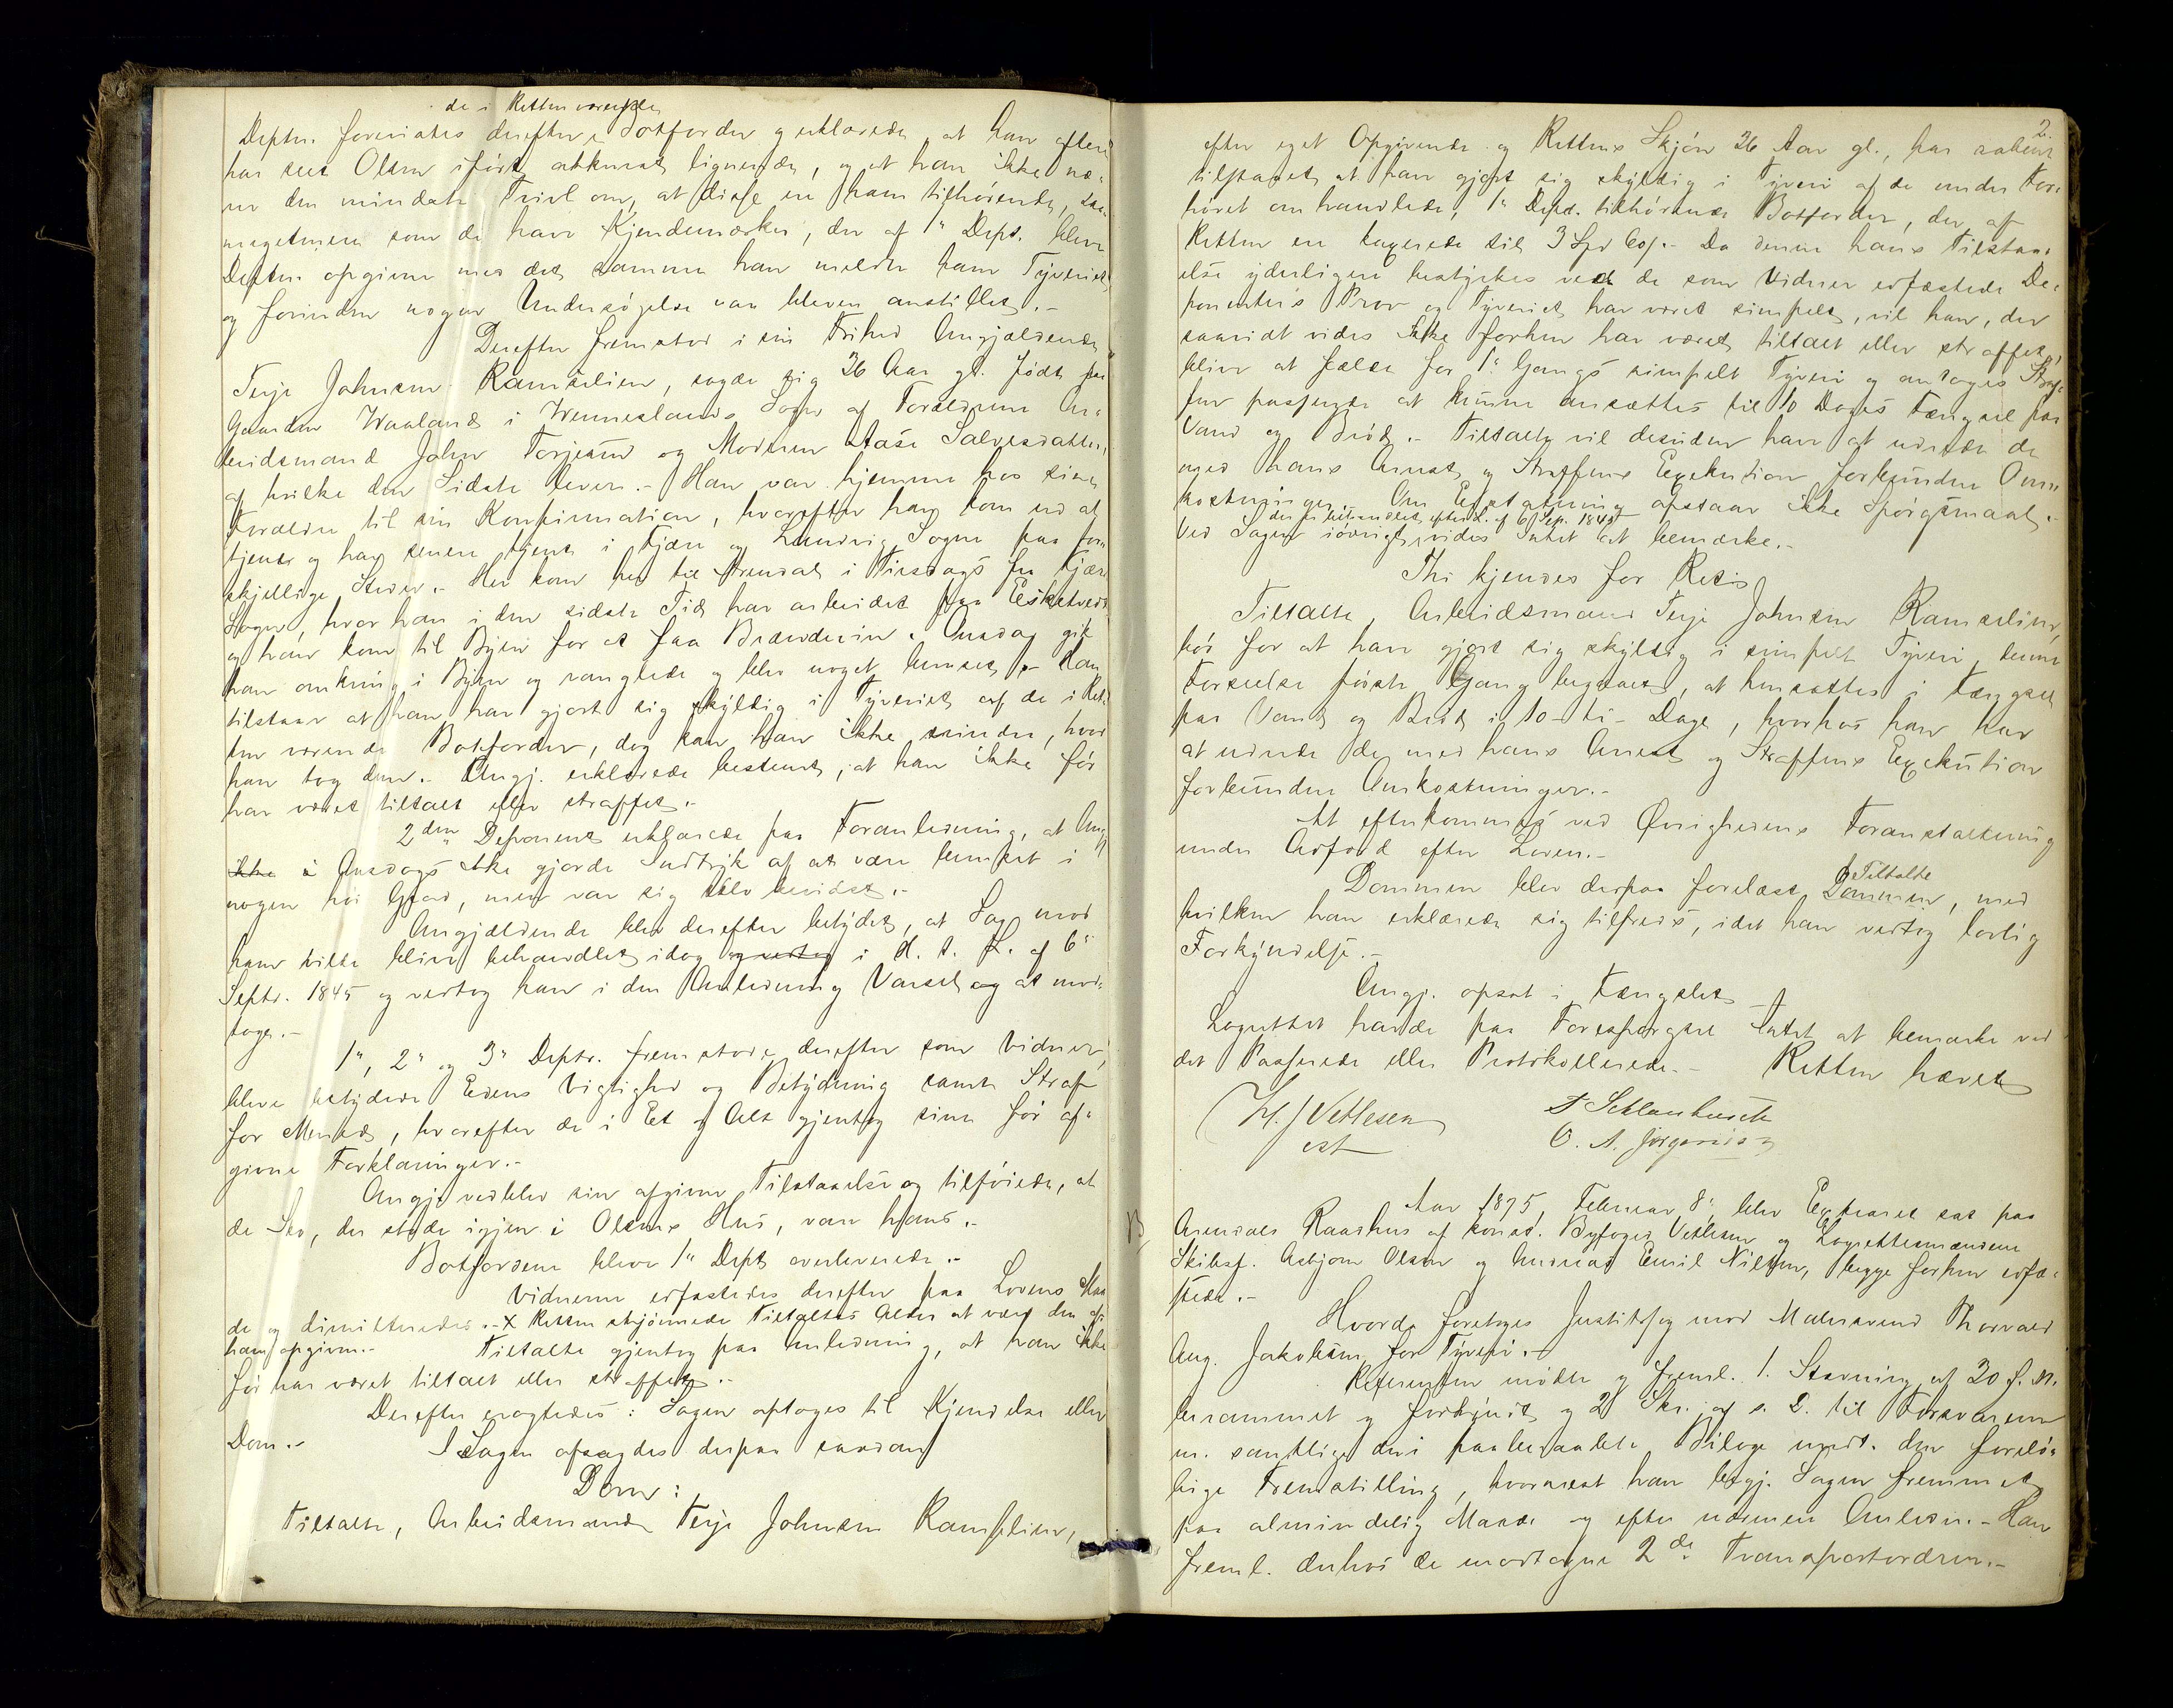 de i Retten værende
Deptn. forevistes derefter Botforder og erklærede, at han oftere
har seet Olsen iført akkurat lignende, og at han ikke næ-
rer den mindste Tvivl om, at disse ere ham tilhørende, saa
meget mere som de have Kjendemærker, der af 1ste Dept. bleve
Deptn. opgivne med det samme han meldte ham Tyveriet
og forinden nogen Undersøgelse var bleven anstillet.-
Derefter fremstod i sin Frihed Angjældende
Terje Johnsen Ramselien, sagde sig 36 Aar gl. født paa
Gaarden Waaland i Wenneslands Sogn af Forældrene Ar-
beidsmand John Torjesen og Moderen Aase Salvesdatter,
af hvilke den Sidste lever.- Han var hjemme hos sine
Forældre til sin Konfirmation, hvorefter han kom ud at
tjene og har senere tjent i Fjære og Landvig Sogne paa for-
skjellige Steder.- Her kom han til Arendal i Tirsdags fra Fjære
Sogn, hvor han i den sidste Tid har arbeidet paa
og han kom til Byen for at faa Brændeviin. Onsdag gik
han omkring i Byen og ranglede og blev noget beruset.- Han
tilstaar at han har gjort sig skyldig i Tyveriet af de i Ret-
ten værende Botforder, dog kan han ikke mindes, hvor
han tog dem.- Angj. erklærede bestemt, at han ikke før
har været tiltalt eller straffet.-
2den Deponent erklærede paa Foranledning, at Angj.
ikke i Onsdags ikke gjorde Indtryk af at være beruset i
nogen høi Grad, men var sig selv bevidst.-
Angjældende blev derefter betydet, at Sag mod
ham vilde blive behandlet idag og vedtog i H. t. L. af 6te
Septr. 1845 og vedtog han i den Anledning Varsel og at mod-
tage.-
1ste, 2den og 3die Deptr. fremstode derefter som Vidner,
bleve betydede Edens Vigtighed og Betydning samt Straf
for Mened, hvorefter de i Et og Alt gjentog sine før af-
givne Forklaringer.-
Angj. vedblev sin afgivne Tilstaaelse og tilføiede, at
de Sko, der stode igjen i Olsens Hus, vare hans.-
Botforderne bleve 1ste Dept. overleverede.-
Vidnerne edfæstedes derefter paa Lovens Maa-
de og dimitteredes.- x Retten skjønnede Tiltaltes Alder at være den af
ham opgivne.- Tiltalte gjentog paa Anledning, at han ikke
før har været tiltalt eller straffet.-
Derefter eragtedes: Sagen optages til Kjendelse eller
Dom.- I Sagen afsagdes derpaa saadan
Dom:
Tiltalte, Arbeidsmand Terje Johnsen Ramselien,
2.
efter eget Opgivende og Rettens Skjøn 36 Aar gl., har aabent
tilstaaet at have gjort sig skyldig i Tyveri af de under For-
høret omhandlede, 1ste Dept. tilhørende Botforder, der af
Retten ere taxerede til 3 Spd 60 s.- Da denne hans Tilstaa-
else yderligere bestyrkes ved de som Vidner edfæstede De-
ponenters Prov og Tyveriet har været simpelt, vil han, der
saavidt vides ikke forhen har været tiltalt eller straffet,
blive at fælde for 1ste Gangs simpelt Tyveri og antages Straf-
fen passende at kunne ansættes til 10 Dages Fængsel paa
Vand og Brød.- Tiltalte vil desuden have at udrede de
med hans Arrest og Straffens Exekution forbundne Om-
kostninger. Om Erstatning opstaar ikke Spørgsmaal.-
der er behandlet efter L. af 6 Sep. 1845
Ved Sagen iøvrigt, vides Intet at bemærke.-
Thi kjendes for Ret:
Tiltalte, Arbeidsmand Terje Johnsen Ramselien,
bør for at have gjort sig skyldig i simpelt Tyveri, denne
Forseelse første Gang begaaet, at hensættes i Fængsel
paa Vand og Brød i 10 - ti - Dage, hvorhos han har
at udrede de med hans Arrest og Straffens Exekution
forbundne Omkostninger.-
At efterkommes ved Øvrighedens Foranstaltning
under Adfærd efter Loven.-
Tiltalte
Dommen blev derpaa forelæst Dommen, med
hvilken han erklærede sig tilfreds, idet han vedtog lovlig
Forkyndelse.-
Angj. opsat i Fængslet.-
Lagrettet havde paa Forespørgsel Intet at bemærke ved
det Passerede eller Protokollerede.- Retten hævet
H. J. Vetlesen
cst
F Schlanbusch
O. A. Jörgensen
B
Aar 1875, Februar 8de, blev Extraret sat paa
Arendals Raadhus af konst. Byfoged Vetlesen og Lagrettesmændene
Skibsf. Asbjørn Olsen og Andreas Emil Nilsen, begge forhen edfæ-
stede.-
Hvorda foretoges Justitssag mod Malersvend Thorvald
Aug. Jakobsen for Tyveri.-
Referenten mødte og freml. 1. Stævning af 30 f. M.
berammet og forkyndt og 2 Skr. af s. D. til Forsvareren
m. samtlige deri paaberaabte Bilage undt. den foreløb-
lige Fremstilling, hvornæst han begj. Sagen fremmet
paa almindelig Maade og efter nærmere Anledn.- Han
freml. derhos de modtagne 2de Transportordrer.-